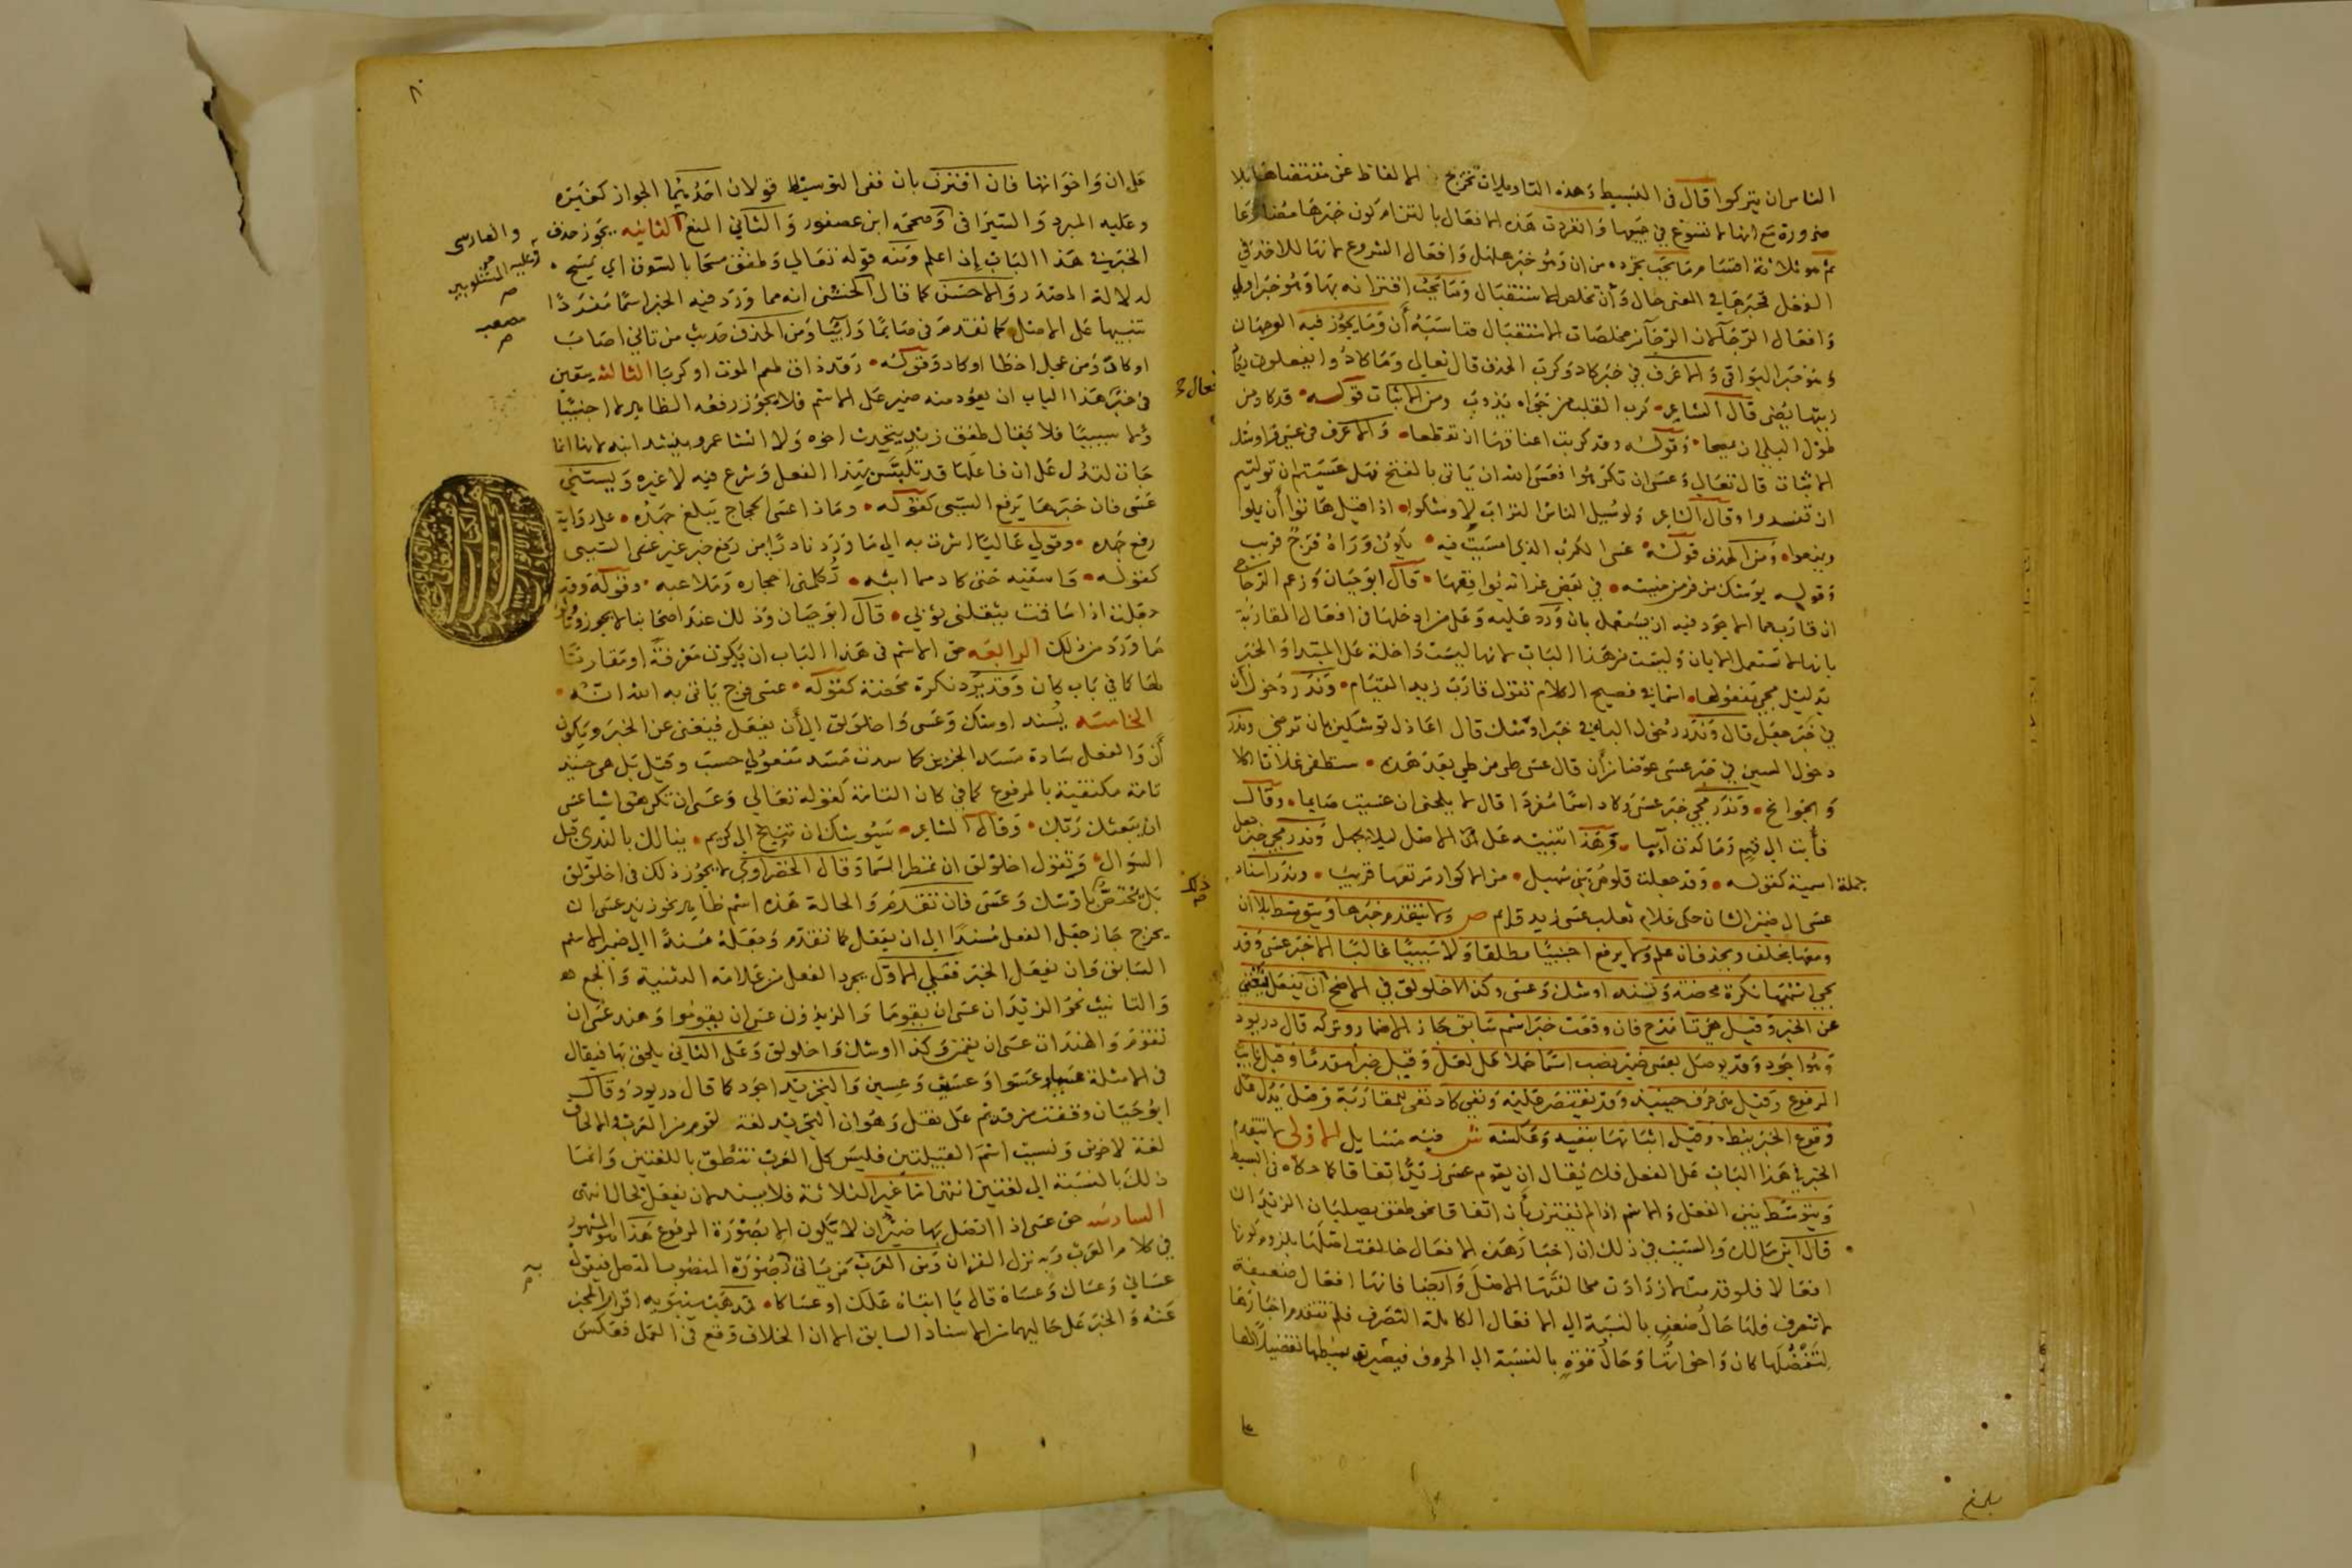 الناس ان يتركوا قال في البسيط وهذه التاويلات تخرج الالفاظ عن مقتضاها بلا
ضرورة مع انها لا تسوغ في جميعها وانفردت هذه الافعال بالتزام كون خبرها مضارعا
ثم هو ثلاثة اقسام ما يجب تجرده من ان وهو خبر هلهل وافعال الشروع لانها للاخذ في
الفعل فخبرها في المعنى حال وان تخلص للاستقبال وما يجب اقترانه بها وهو خبر اولى
وافعال الرجا لان الرجا من مخلصات الاستقبال فناسبه أن وما يجوز فيه الوجهان
وهو خبر البواقي والاعرف في خبر كاد وكرب الحذف قال تعالى وما كادوا يفعلون يكاد
زيتها يضى قال الشاعر كرب القلب من جواه يذوب ومن الاثبات قوله قد كاد من
طول البلى ان يمصحا وقوله وقد كربت اعناقها ان تقطعا والاعرف في عسى واوشك
الاثبات قال تعالى وعسى ان تكرهوا فعسى الله ان ياتي بالفتح فهل عسيتم ان توليتم
ان تفسدوا وقال الشاعر ولو سيل الناس التراب لاوشكوا اذا قيل هاتوا أن يملوا
ويمنعوا ومن الحذف قوله عسى الكرب الذي امسيت فيه يكون وراه فرج قريب
وقوله يوشك من فر من منيته في بعض غراته يوافقها قال ابو حيان وزعم الزجاج
ان قارب مما الاجود فيه ان يستعمل بان ورد عليه وعلى من ادخلها في افعال المقاربة
بانها لا تستعمل الا بان وليست من هذا الباب لانها ليست داخلة على المبتدا والخبر
بدليل مجي مفعولها اسما في فصيح الكلام تقول قارب زيد القيام وندر دخول أن
في خبر جعل قال وندر دخول البا في خبر اوشك قال اعاذل توشكين بان تريني وندر
دخول السين في خبر عسى عوضا من أن قال عسى طى من طى بعد هذه ستطفى غلات الكلا
والجوانح وندر مجي خبر عسى وكاد اسما مفردا قال لا يلحنى ان عسيت صايما وقال
فأبت الى فهم وما كدت آيبا وهذا تنبيه على أن الاصل ليلا يجهل وندر مجي خبر جعل
جملة اسمية كقوله وقد جعلت قلوص بني سهيل من الاكوار مرتعها قريب وندر اسناد
عسى الى ضمير الشان حكى غلام ثعلب عسى زيد قايم ص ولا يتقدم خبرها ويتوسط بلا ان
ومعها بخلف ويحذف ان علم ولا يرفع اجنبيا مطلقا ولا سببيا غالبا الا خبر عسى وقد
يجي اسمها نكرة محضة ويسند اوشك وعسى وكذا اخلولق في الاصح أن يفعل فيغني
عن الخبر وقيل هي تامة ح فان وقعت خبر اسم سابق جاز الاضمار وتركه قال دريود
وهو اجود وقد يوصل بعسى ضمير نصب اسما حملا على لعل وقيل خبرا مقدما وقيل نايب
المرفوع وقيل هي حرف حينيذ وقد يقتصر عليه ونفي كاد نفي للمقاربة وقيل يدل على
وقوع الخبر ببطء وقيل اثباتها بنفيه وعكسه ش فيه مسايل الاولى لا يتقدم
الخبر في هذا الباب على الفعل فلا يقال ان يقوم عسى زيد اتفاقا كما حكاه في البسيط
ويتوسط بين الفعل والاسم اذا لم يقترن بأن اتفاقا نحو طفق يصليان الزيدان
قال ابن مالك والسبب في ذلك ان اخبار هذه الافعال خالفت اصلها بلزوم كونها
افعالا فلو قدمت لازدادت مخالفتها الاصل وايضا فانها افعال ضعيفة
لا تتصرف فلها حال ضعف بالنسبة الى الافعال الكاملة التصرف فلم تتقدم اخبارها
لتفضلها كان واخواتها وحال قوة بالنسبة الى الحروف فتوسيطها تفضيلا لها
بلغ
٨٠
على ان واخواتها فان اقترن بان ففي التوسيط قولان احدهما الجواز كغيره
وعليه المبرد والسيرافي وصححه ابن عصفور والثاني المنع الثانية يجوز حذف
والفارسي
وعليه الشلوبين
الخبر في هذا الباب إن اعلم ومنه قوله تعالى وطفق مسحا بالسوق اي يمسح
لدلالة المصدر والاحسن كما قال الخشني انه مما ورد فيه الخبر اسما مفردا
تنبيها على الاصل كما تقدم في صايما وآيبا ومن الحذف حديث من تاني اصاب
او كاد ومن عجل اخطا او كاد وقوله وقد ذاق طعم الموت او كربا الثالثة يتعين
في خبر هذا الباب ان يعود منه ضمير على الاسم فلا يجوز رفعه الظاهر لا اجنبيا
ولا سببيا فلا يقال طفق زيد يتحدث اخوه ولا انشا عمرو ينشد ابنه لانها انما
جات لتدل على ان فاعلها قد تلبس بهذا الفعل وشرع فيه لا غيره ويستثنى
عسى فان خبرها يرفع السببي كقوله وماذا عسى الحجاج يبلغ جهده على رواية
رفع جهده وقولي غالبا اشرت به الى ما ورد نادرا من رفع خبر غير عسى السببي
كقوله واسقيه حتى كاد مما ابثه تكلمني احجاره وملاعبه وقوله وقد
جعلت اذا ما قمت يثقلني ثوبي قال ابو حيان وذلك عند اصحابنا لا يجوز وتاولوا
ما ورد من ذلك الرابعه حق الاسم في هذا الباب ان يكون معرفة او مقاربا
لها كما في باب كان وقد يرد نكرة محضة كقوله عسى فرج ياتي به الله انه
الخامسه يسند اوشك وعسى واخلولق الى أن يفعل فيغني عن الخبر ويكون
أن والفعل سادة مسد الجزين كما سدت مسد مفعولي حسب وقيل بل هي حينيذ
تامة مكتفية بالمرفوع كما في كان التامة كقوله تعالى وعسى ان تكرهوا شيا عسى
ان يبعثك ربك وقال الشاعر سيوشك ان تنيخ الى كريم ينالك بالندى قبل
السوال وتقول اخلولق ان تمطر السما وقال الخضراوي لا يجوز ذلك في اخلولق
ذلك
بل يختص باوشك وعسى فان تقدم والحالة هذه اسم ظاهر نحو زيد عسى ان
يخرج جاز جعل الفعل مسندا الى ان يفعل كما تقدم وجعله مسندا الى ضمير الاسم
السابق وان يفعل الخبر فعلى الاول يجرد الفعل من علامة التثنية والجمع
والتانيث نحو الزيدان عسى ان يقوما والزيدون عسى ان يقوموا وهند عسى ان
تقوم والهندات عسى ان يقمن وكذا اوشك واخلولق وعلى الثاني يلحق بها فيقال
في الامثلة عسيا وعسوا وعسيت وعسين والتجريد اجود كما قال دريود وقال
ابو حيان وقفت من قديم على نقل وهو ان التجريد لغة لقوم من العرب والالحاق
لغة لاخرين ونسيت اسم القبيلتين فليس كل العرب تنطق باللغتين وانما
ذلك بالنسبة الى لغتين انتهى اما غير الثلاثة فلا يسند لان يفعل بحال انتهى
السادسه حق عسى اذا اتصل بها ضمير ان لا يكون الا بصورة المرفوع هذا هو المشهور
في كلام العرب وبه نزل القران ومن العرب من ياتي بصورة المنصوب المتصل فيقول
عساني وعساك وعساه قال يا ابتاه علك او عساكا فمذهب سيبويه اقرار المخبر
عنه والخبر على حاليهما من الاسناد السابق الا ان الخلاف وقع في العمل فعكس